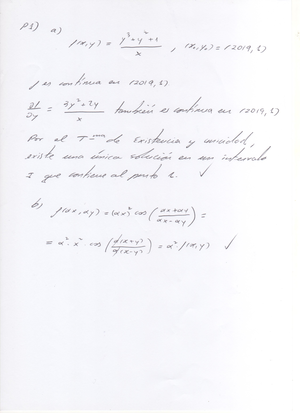 P1) a)
f(x,y) = (y³+y²+1)/x , (x₀,y₀) = (2019, 1)
f es continua en (2019, 1).
∂f/∂y = (3y²+2y)/x también es continua en (2019, 1)
Por el T de Existencia y unicidad,
existe una única solución en un intervalo
I que contiene al punto ✓
b) f(αx, αy) = (αx)² cos((αx+αy)/(αx-αy)) =
= α²·x² cos(α(x+y)/α(x-y)) = α²·f(x,y) ✓